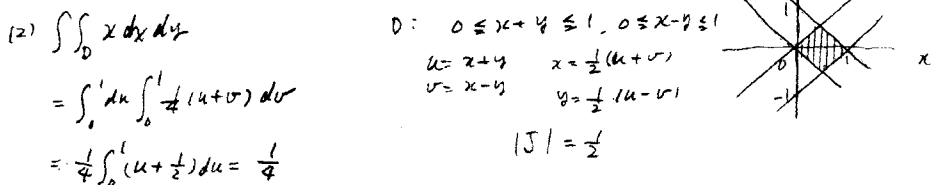 (2) ∬_D x dx dy
= ∫_0^1 du ∫_0^1 1/4 (u+v) dv
= 1/4 ∫_0^1 (u + 1/2) du = 1/4
D: 0 ≦ x+y ≦ 1, 0 ≦ x-y ≦ 1
u = x+y x = 1/2 (u+v)
v = x-y y = 1/2 (u-v)
|J| = 1/2
1
0 1 x
-1